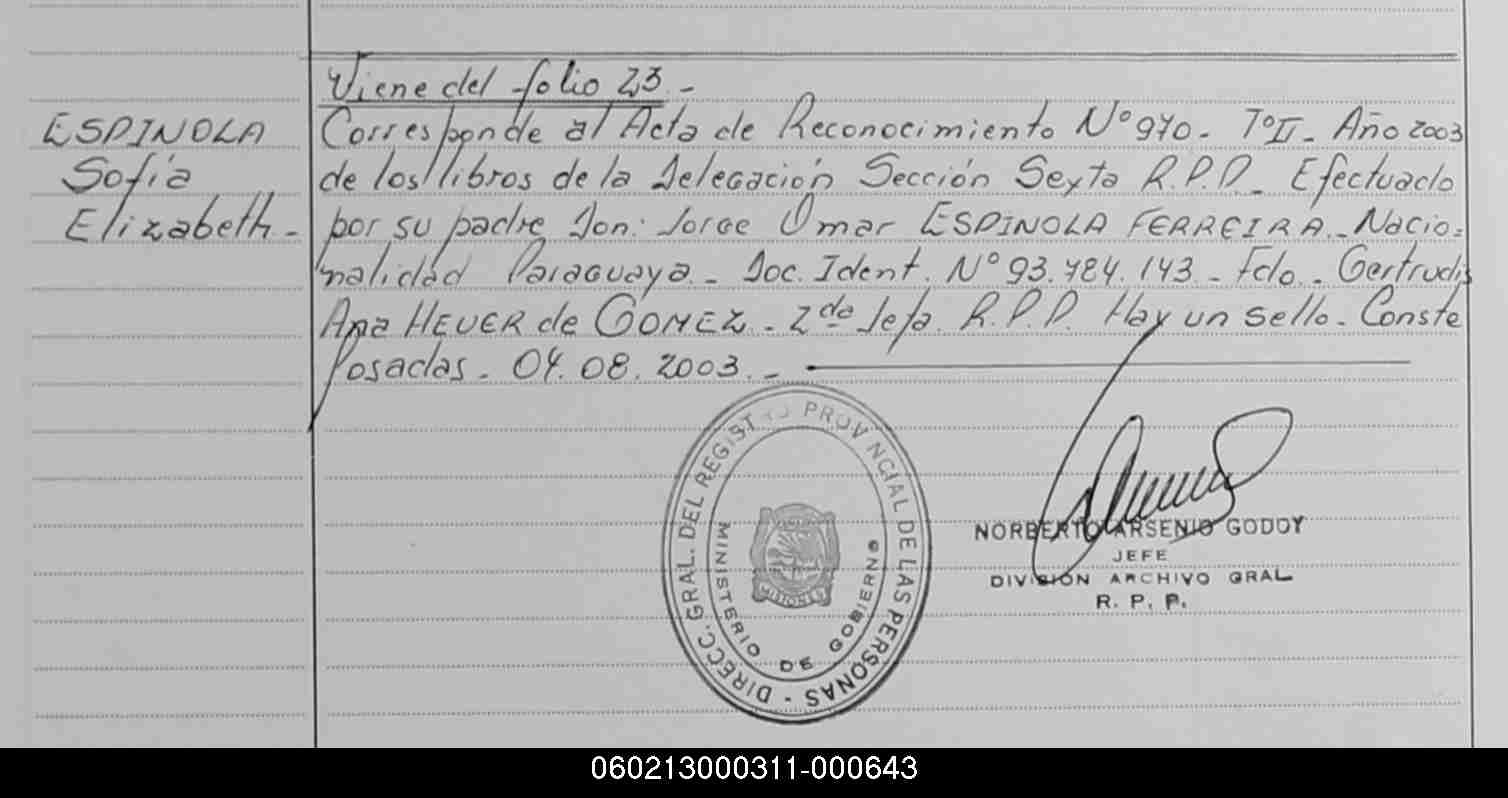 Viene del folio 23.-
ESPINOLA
Sofía
Elizabeth-
Corresponde al Acta de Reconocimiento Nº 970. TºII- Año 2003
de los libros de la Delegación Sección Sexta R.P.P.- Efectuado
por su padre Don: Jorge Omar ESPINOLA FERREIRA.- Nacio=
nalidad Paraguaya.- Doc. Ident. Nº 93.784.143.- Fdo.- Gertrudis
Ana HEUER de GOMEZ.- 2da Jefa. R.P.P. Hay un sello.- Conste
Posadas.- 04.08.2003.-
DIRECC. GRAL. DEL REGISTRO PROVINCIAL DE LAS PERSONAS -
MINISTERIO DE GOBIERNO
MISIONES
NORBERTO ARSENIO GODOY
JEFE
DIVISIÓN ARCHIVO GRAL
R. P. P.
060213000311-000643